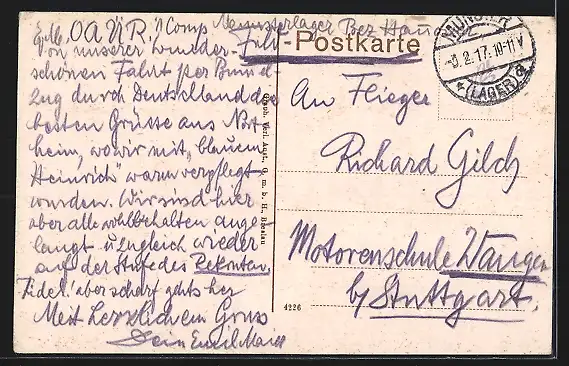 OAUR. 1 Comp Munsterlager Bez Han
Von unserer wunder-
schönen Fahrt per Bummel
zug durch Deutschland die
besten Grüsse aus Nort
heim, wo wir mit „blauem
Heinrich" warm verpflegt
wurden. Wir sind hier
aber alle wohlbehalten ange
langt u. zugleich wieder
auf der Stufe des Rekruten.
Fidel! aber scharf gehts her
Mit herzlichem Gruss
Dein Emil Maier
Feld-Postkarte
MUNSTER
2.17.10-11V
*(LAGER)a
An Flieger
Richard Gilch
Motorenschule Wangen
b/ Stuttgart.
Graph. Verl. Anst., G. m. b. H., Breslau
4226